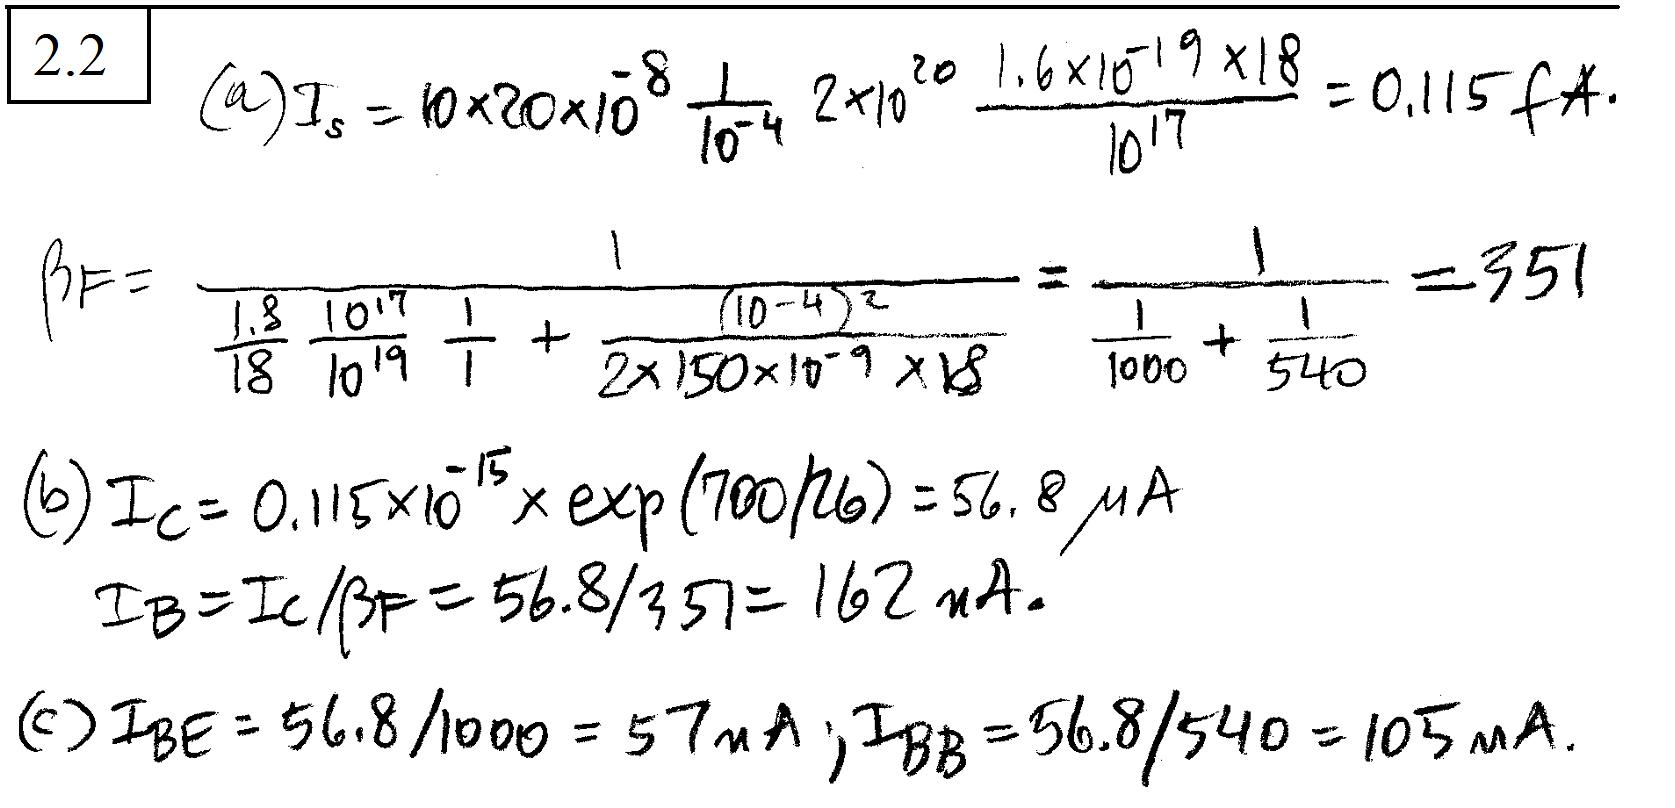 2.2
(a) Is = 10×20×10^-8 1/10^-4 2×10^20 (1.6×10^-19 ×18)/10^17 = 0.115 fA.
βF = 1/(1.8/18 10^17/10^19 1/1 + (10^-4)^2/(2×150×10^-9 ×18)) = 1/(1/1000 + 1/540) = 351
(b) IC = 0.115×10^-15 × exp(700/26) = 56.8 μA
IB = IC/βF = 56.8/351 = 162 nA.
(c) IBE = 56.8/1000 = 57 nA; IBB = 56.8/540 = 105 nA.